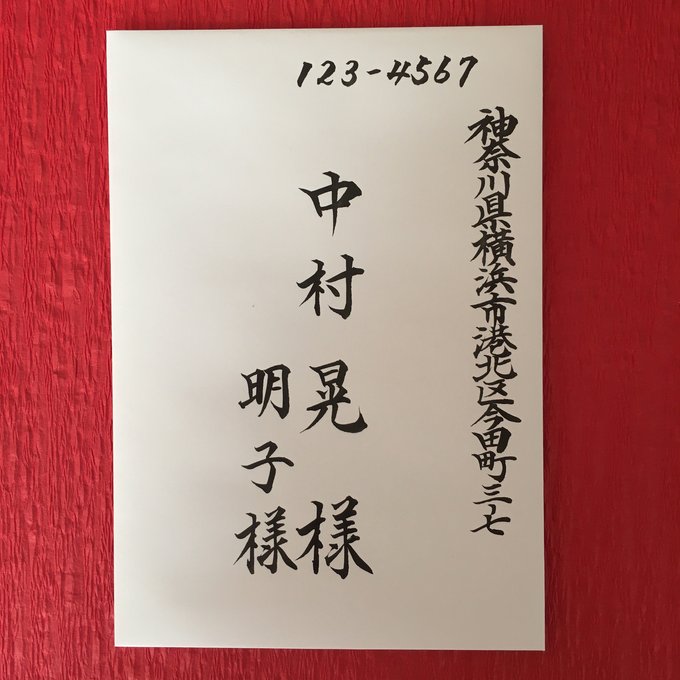 123-4567
神奈川県横浜市港北区今田町三七
中村 晃 様
明子 様